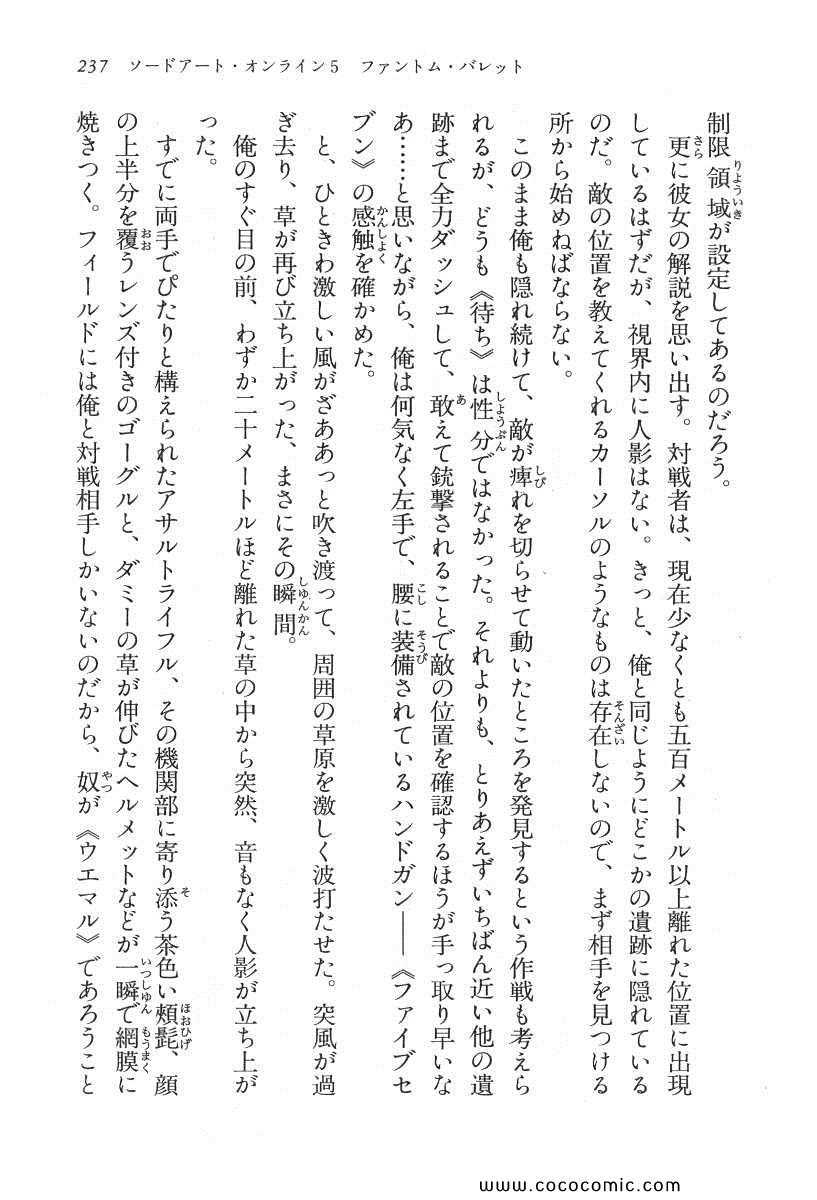 237　ソードアート・オンライン5　ファントム・バレット
制限領域が設定してあるのだろう。
　更に彼女の解説を思い出す。対戦者は、現在少なくとも五百メートル以上離れた位置に出現
しているはずだが、視界内に人影はない。きっと、俺と同じようにどこかの遺跡に隠れている
のだ。敵の位置を教えてくれるカーソルのようなものは存在しないので、まず相手を見つける
所から始めねばならない。
　このまま俺も隠れ続けて、敵が痺れを切らせて動いたところを発見するという作戦も考えら
れるが、どうも《待ち》は性分ではなかった。それよりも、とりあえずいちばん近い他の遺
跡まで全力ダッシュして、敢えて銃撃されることで敵の位置を確認するほうが手っ取り早いな
あ……と思いながら、俺は何気なく左手で、腰に装備されているハンドガン――《ファイブセ
ブン》の感触を確かめた。
　と、ひときわ激しい風がざああっと吹き渡って、周囲の草原を激しく波打たせた。突風が過
ぎ去り、草が再び立ち上がった、まさにその瞬間。
　俺のすぐ目の前、わずか二十メートルほど離れた草の中から突然、音もなく人影が立ち上が
った。
　すでに両手でぴたりと構えられたアサルトライフル、その機関部に寄り添う茶色い頰髭、顔
の上半分を覆うレンズ付きのゴーグルと、ダミーの草が伸びたヘルメットなどが一瞬で網膜に
焼きつく。フィールドには俺と対戦相手しかいないのだから、奴が《ウエマル》であろうこと
www.cococomic.com